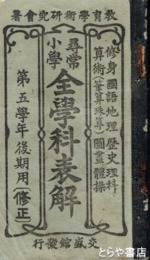 教育學術研究會著
修身國語地理歷史理科
算術(筆算珠算)圖畫體操
尋常
小學
全學科表解
第五學年後期用(修正)
交盛館發行
とらや書房